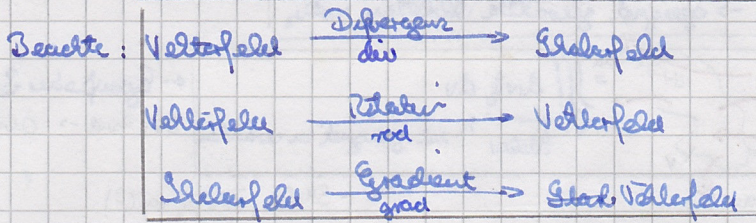 Beachte: Vektorfeld Divergenz div Skalarfeld
Vektorfeld Rotation rot Vektorfeld
Skalarfeld Gradient grad Vektorfeld